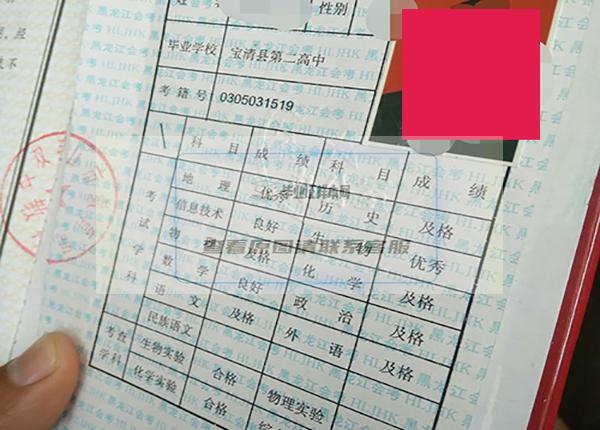 性别
毕业学校 宝清县第二高中
考籍号 0305031519
科目 成绩 科目 成绩
考试学科
地理 优秀 历史 及格
信息技术 良好 生物 优秀
物 及格 化学 及格
数学 良好 政治 及格
语文 及格 外语 及格
考查学科
民族语文
生物实验 合格 物理实验
化学实验 合格
毕业证样本网
查看原图请联系客服
黑龙江会考 HLJHK